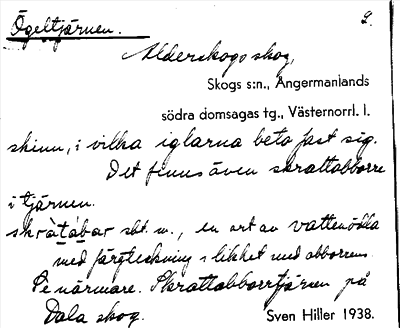 Ögeltjärnen. 2.
Alderskogs skog,
Skogs s:n., Ångermanlands
södra domsagas tg., Västernorrl. l.
skinn, i vilka iglarna beta fast sig.
Det finns även skrattabborre
i tjärnen.
skràtàbar sbt. m., en art av vattenödla
med färgteckning i likhet med abborrens.
Se närmare. Skrattabborrtjärnen på
Dala skog. Sven Hiller 1938.